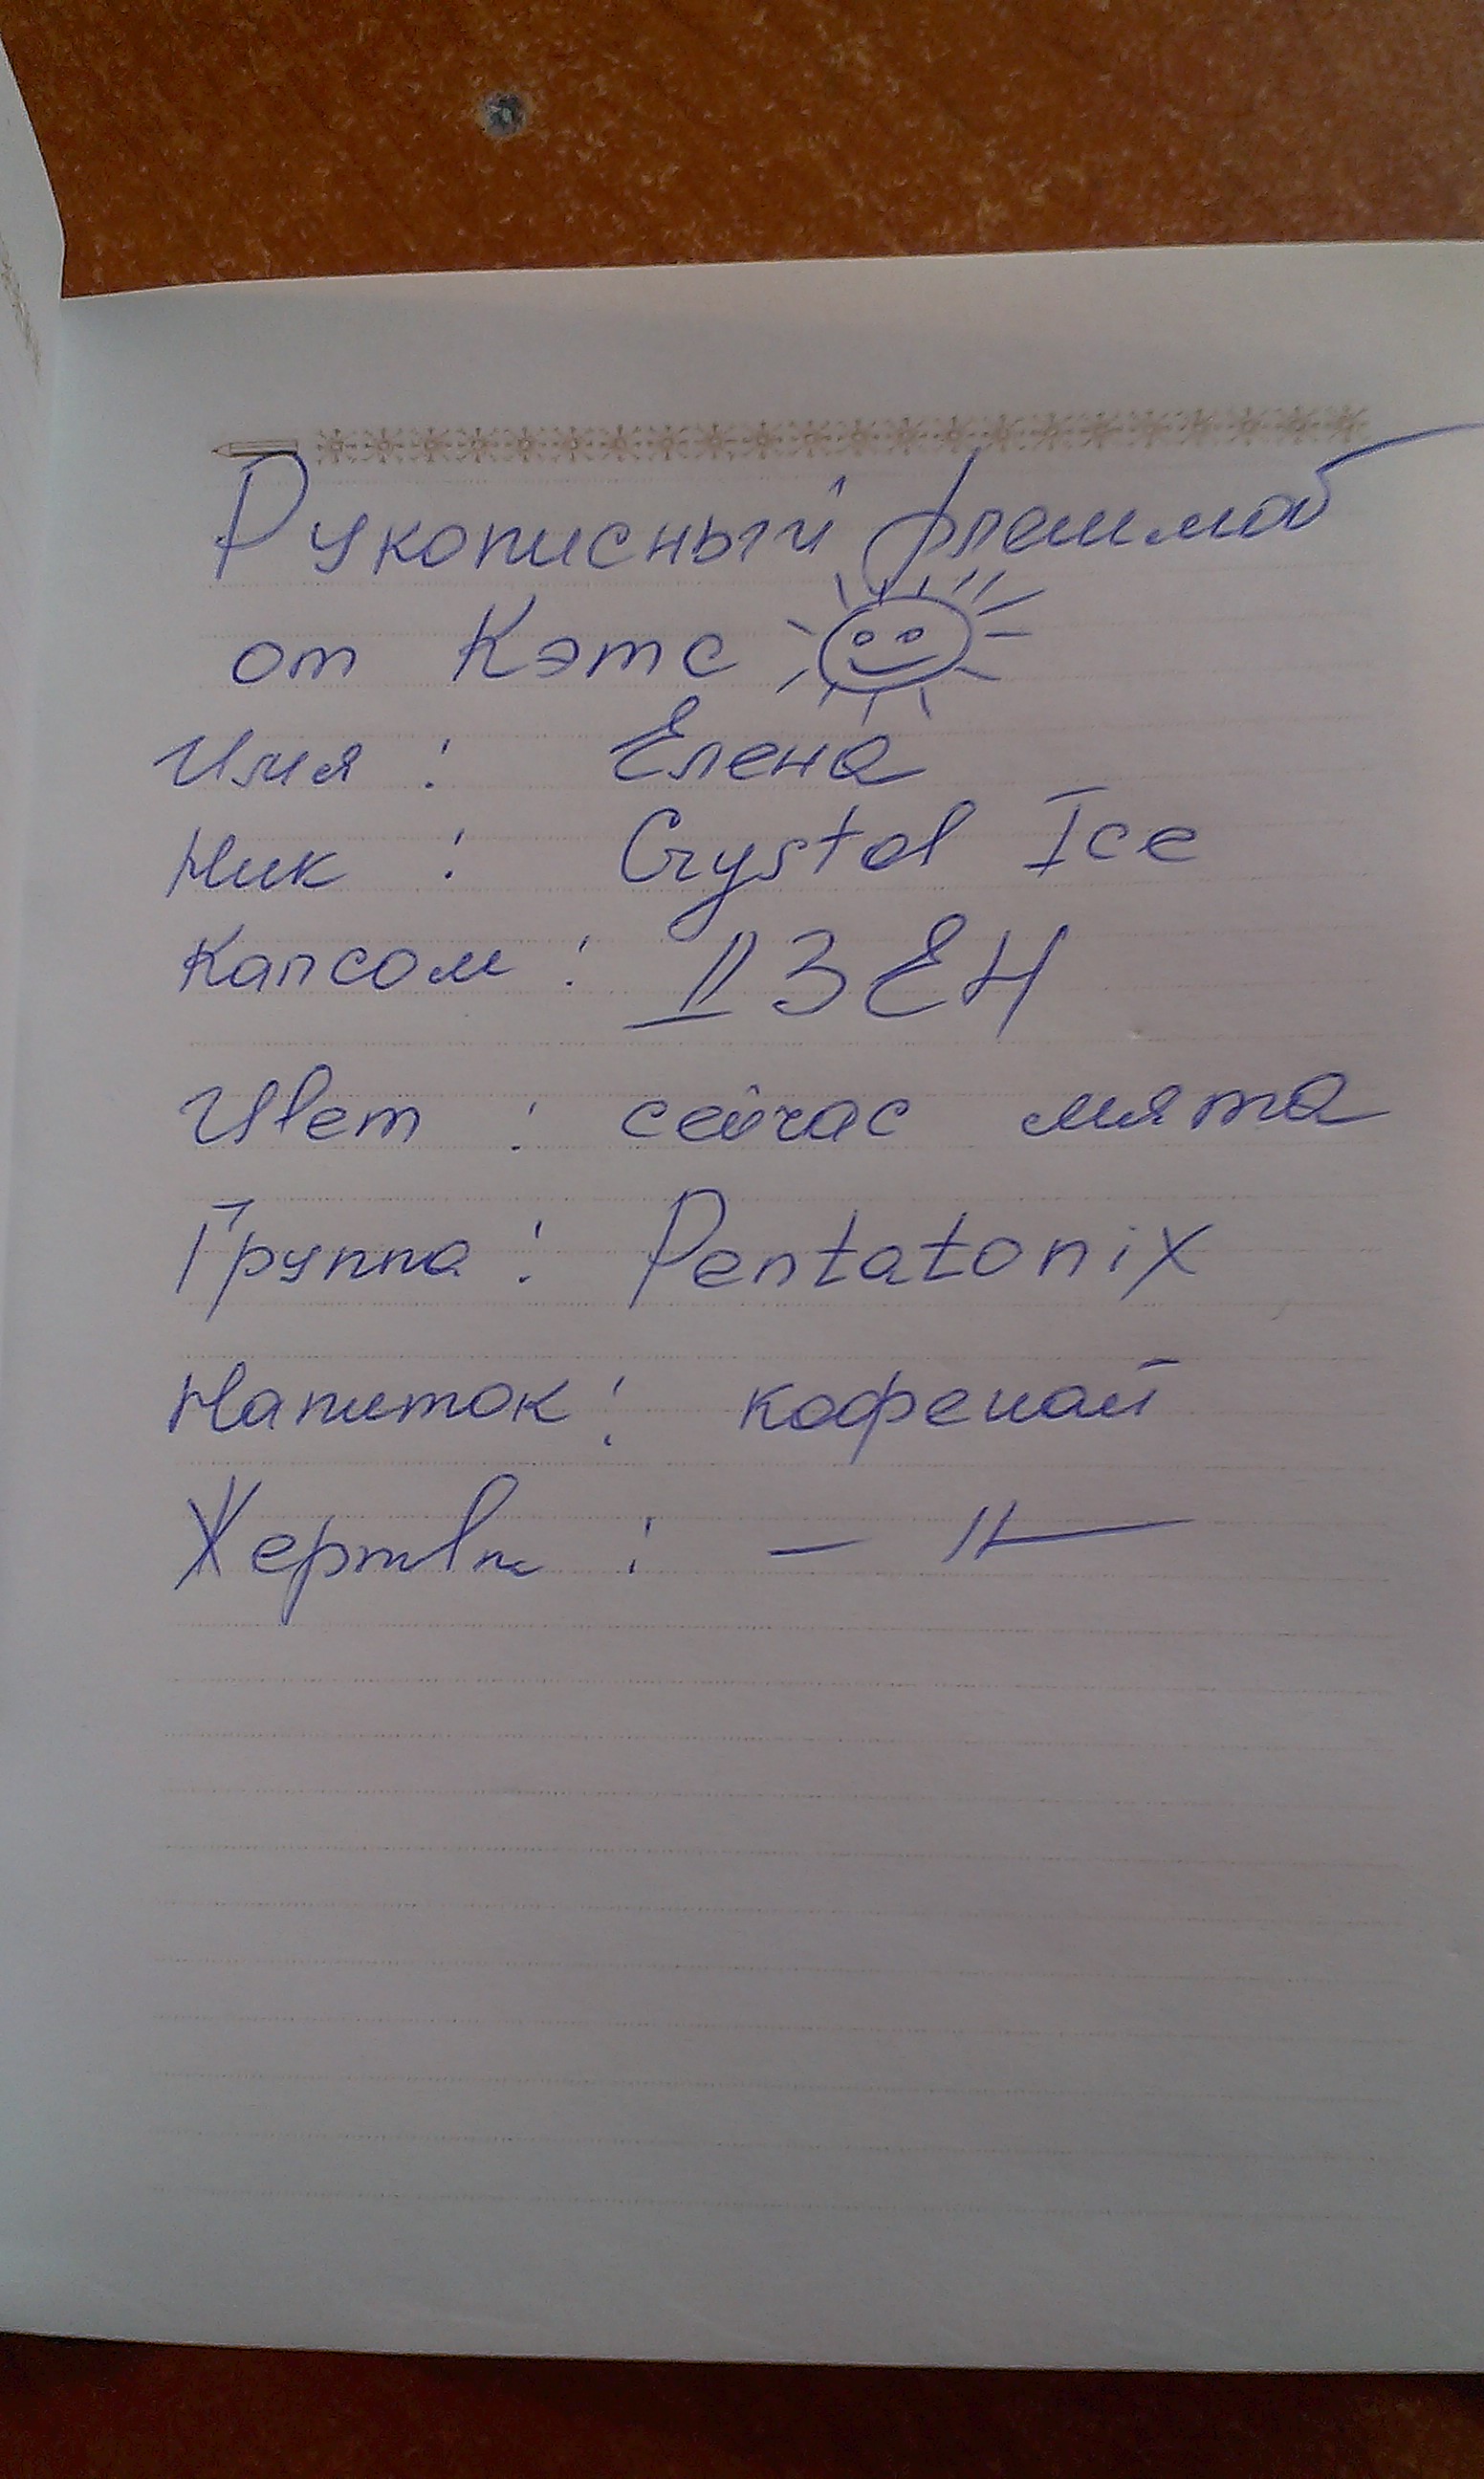 Рукописный флешмоб
от Кэтс
Имя : Елена
Ник : Crystal Ice
Капсом : ДЗЕН
Цвет : сейчас мята
Группа : Pentatonix
Напиток : кофечай
Жертвы : — //—